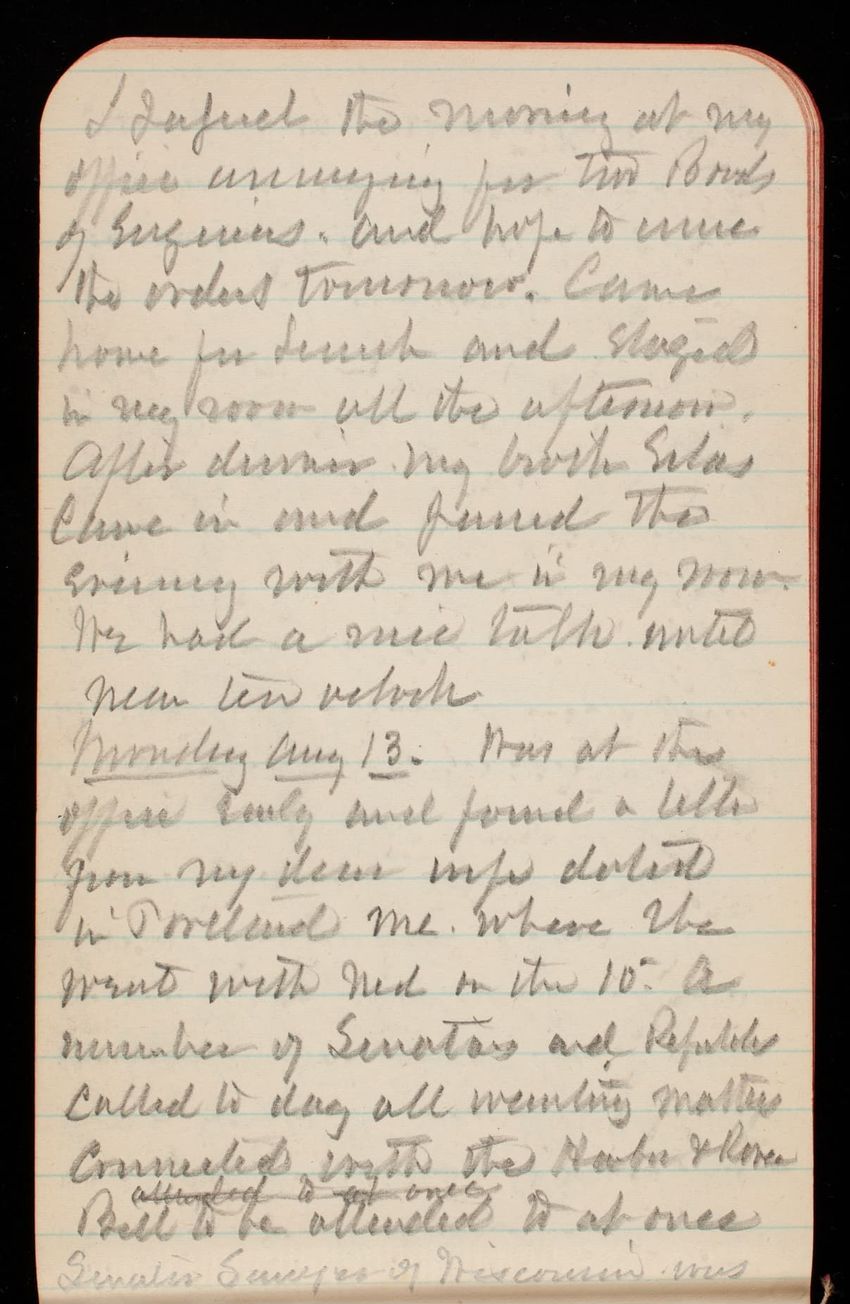 I passed the morning at my
office arranging for two Boards
of Engineers. and hope to issue
the orders tomorrow. Came
home for Lunch and Stayed
in my room all the afternoon.
After dinner my broth Silas
Came in and passed the
Evening with me in my room.
We had a nice talk until
near ten oclock
Monday Aug 13. Was at the
office Early and found a letter
from my dear wife dated
in Portland Me. where she
went with Ned on the 10". A
number of Senators and
Called to day all wanting matters
Connected with the Harbor & River
attended to at once
Bill to be attended to at once
Senator Sawyer of Wisconsin was